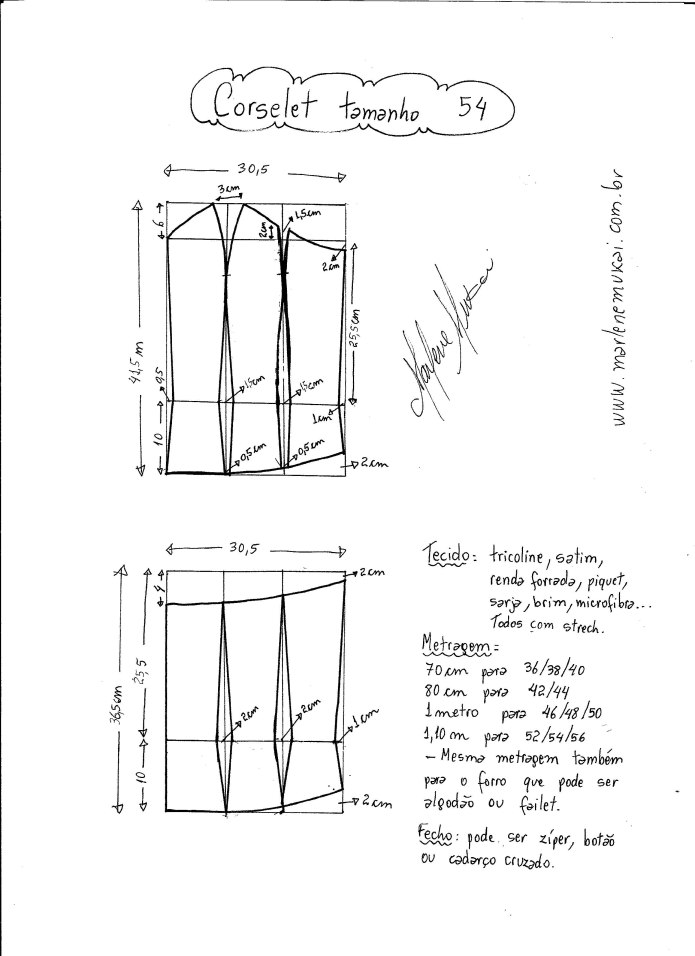 Corselet tamanho 54
30,5
3 cm
6
1,5cm
2cm
2cm
41,5 m
25,5cm
0,5
1,5cm
1,5cm
1cm
10
0,5cm
0,5cm
2 cm
www.marlenemukai.com.br
Marlene Mukai
30,5
2cm
4
36,5cm
25,5
2cm
2cm
1 cm
10
2 cm
Tecido: tricoline, satim,
renda forrada, piquet,
sarja, brim, microfibra...
Todos com strech.
Metragem=
70 cm para 36/38/40
80 cm para 42/44
1 metro para 46/48/50
1,10 m para 52/54/56
– Mesma metragem também
para o forro que pode ser
algodão ou failet.
Fecho: pode ser zíper, botão
ou cadarço cruzado.